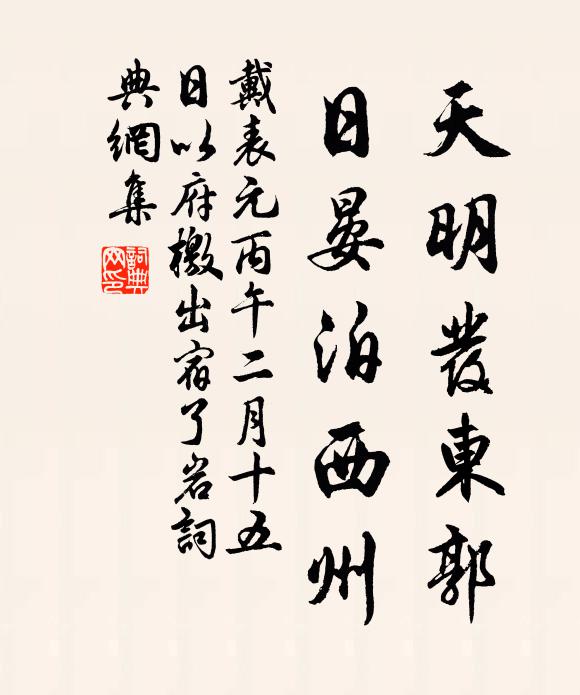 天明發東郭
日晏泊西州
戴表元丙午二月十五
日以府檄出宿了岩詞
典網集
詞典網印